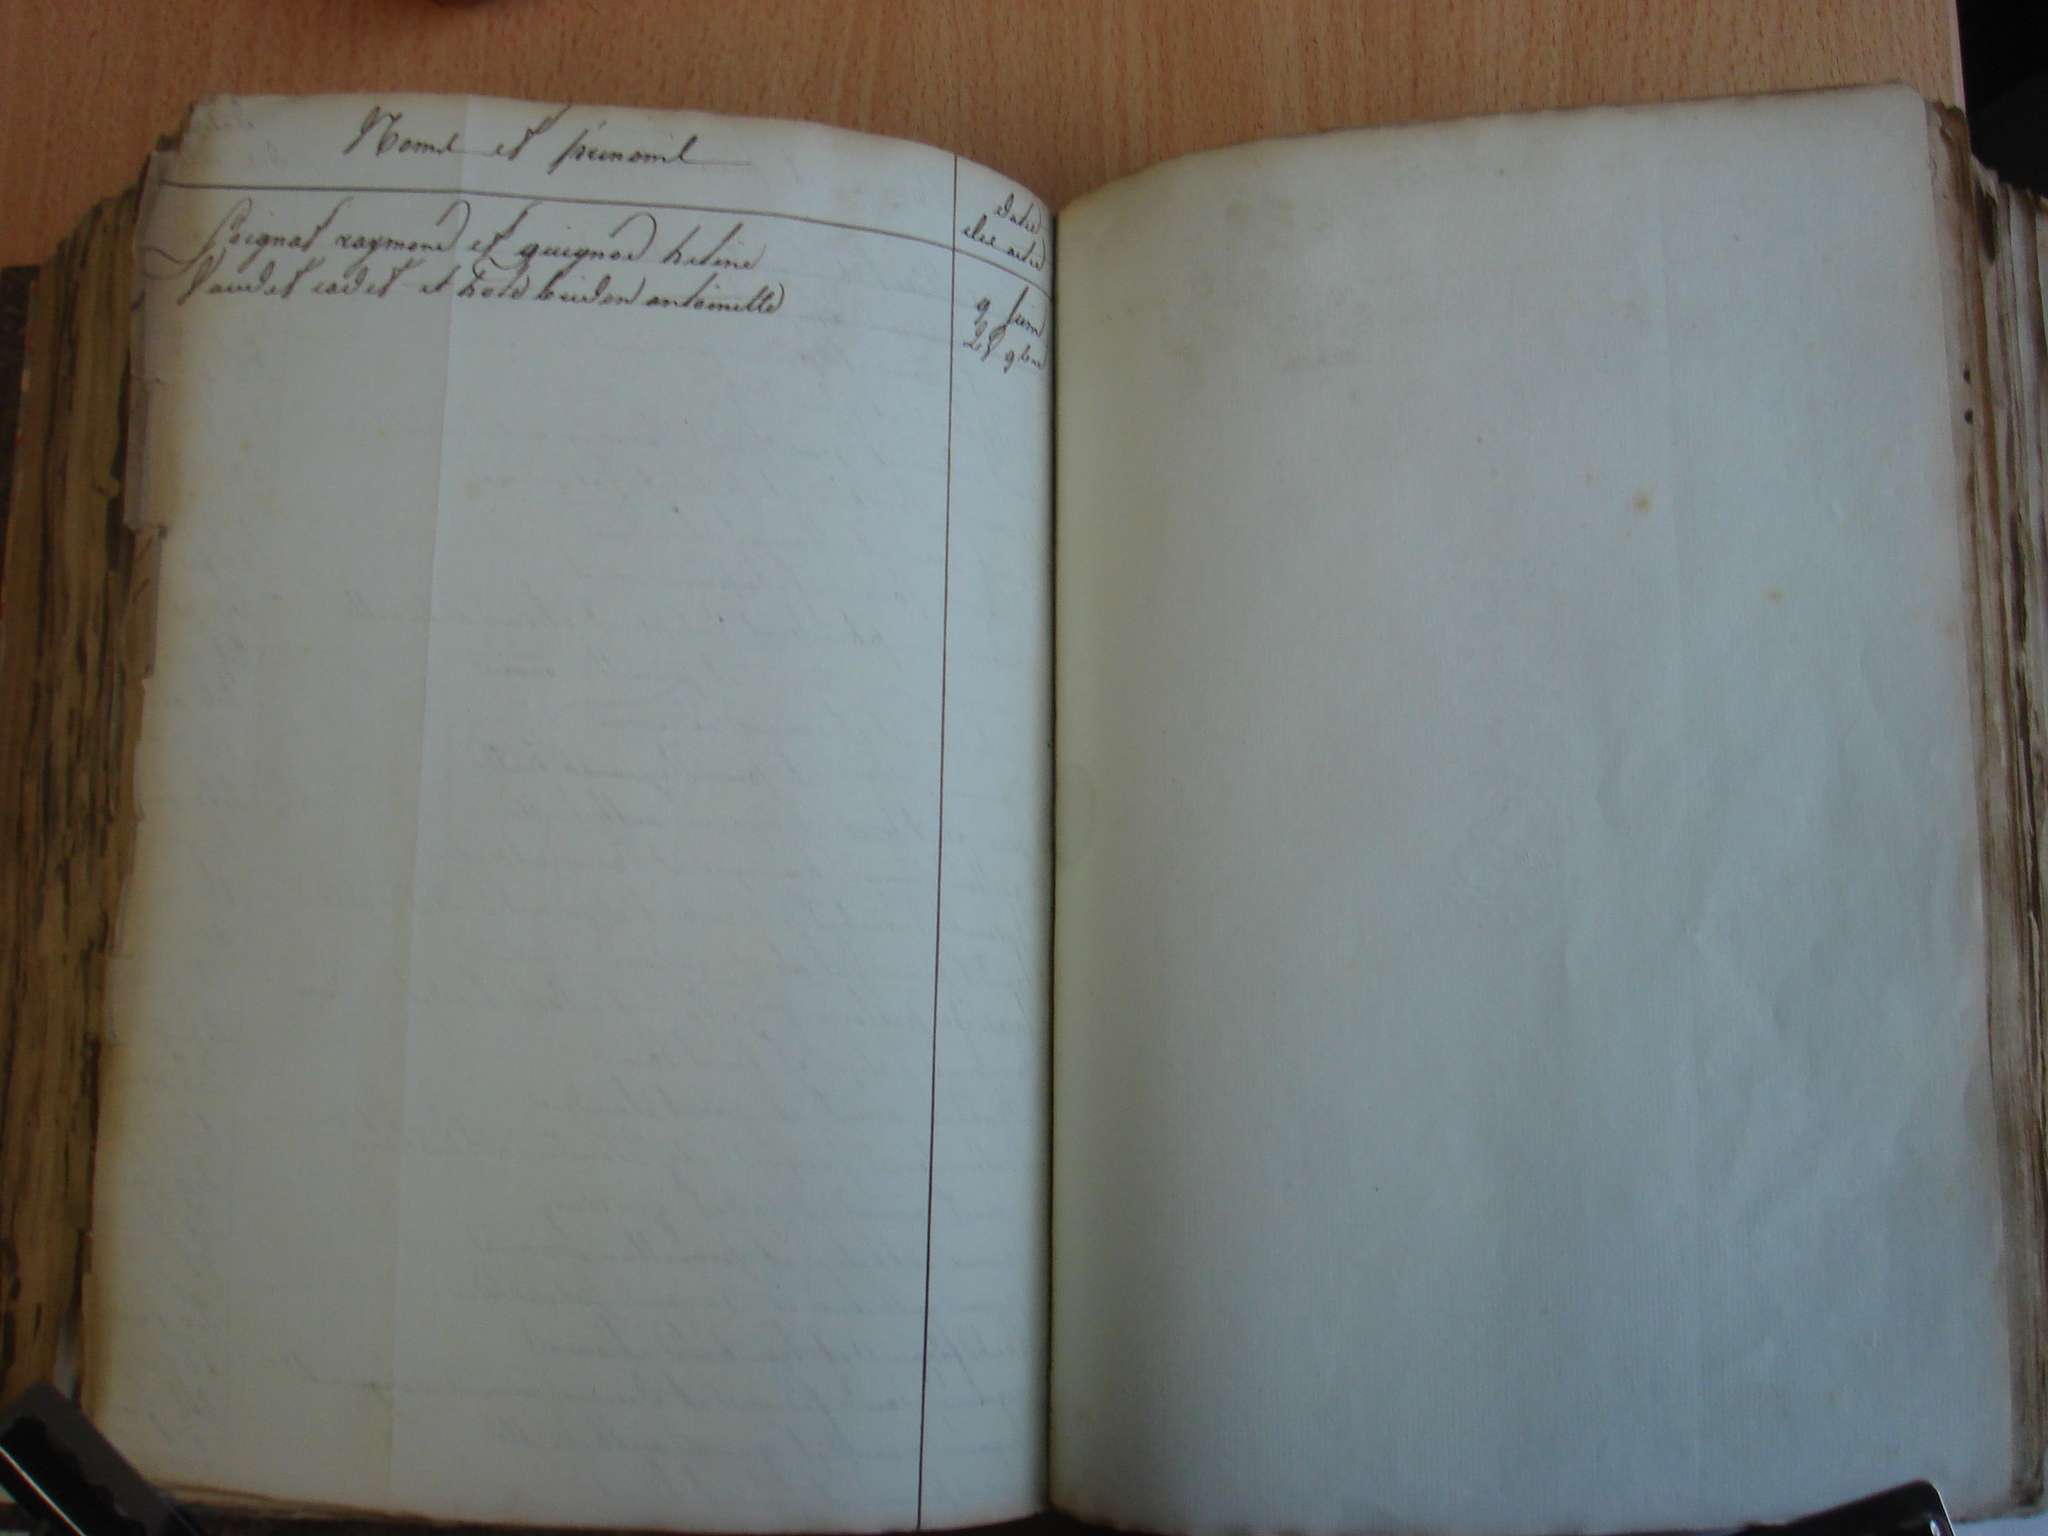 Noms et prénoms
date
des actes
Soignat raymond et guignard helène
Vaudet cadet et antoinette
9 juin
28 9bre